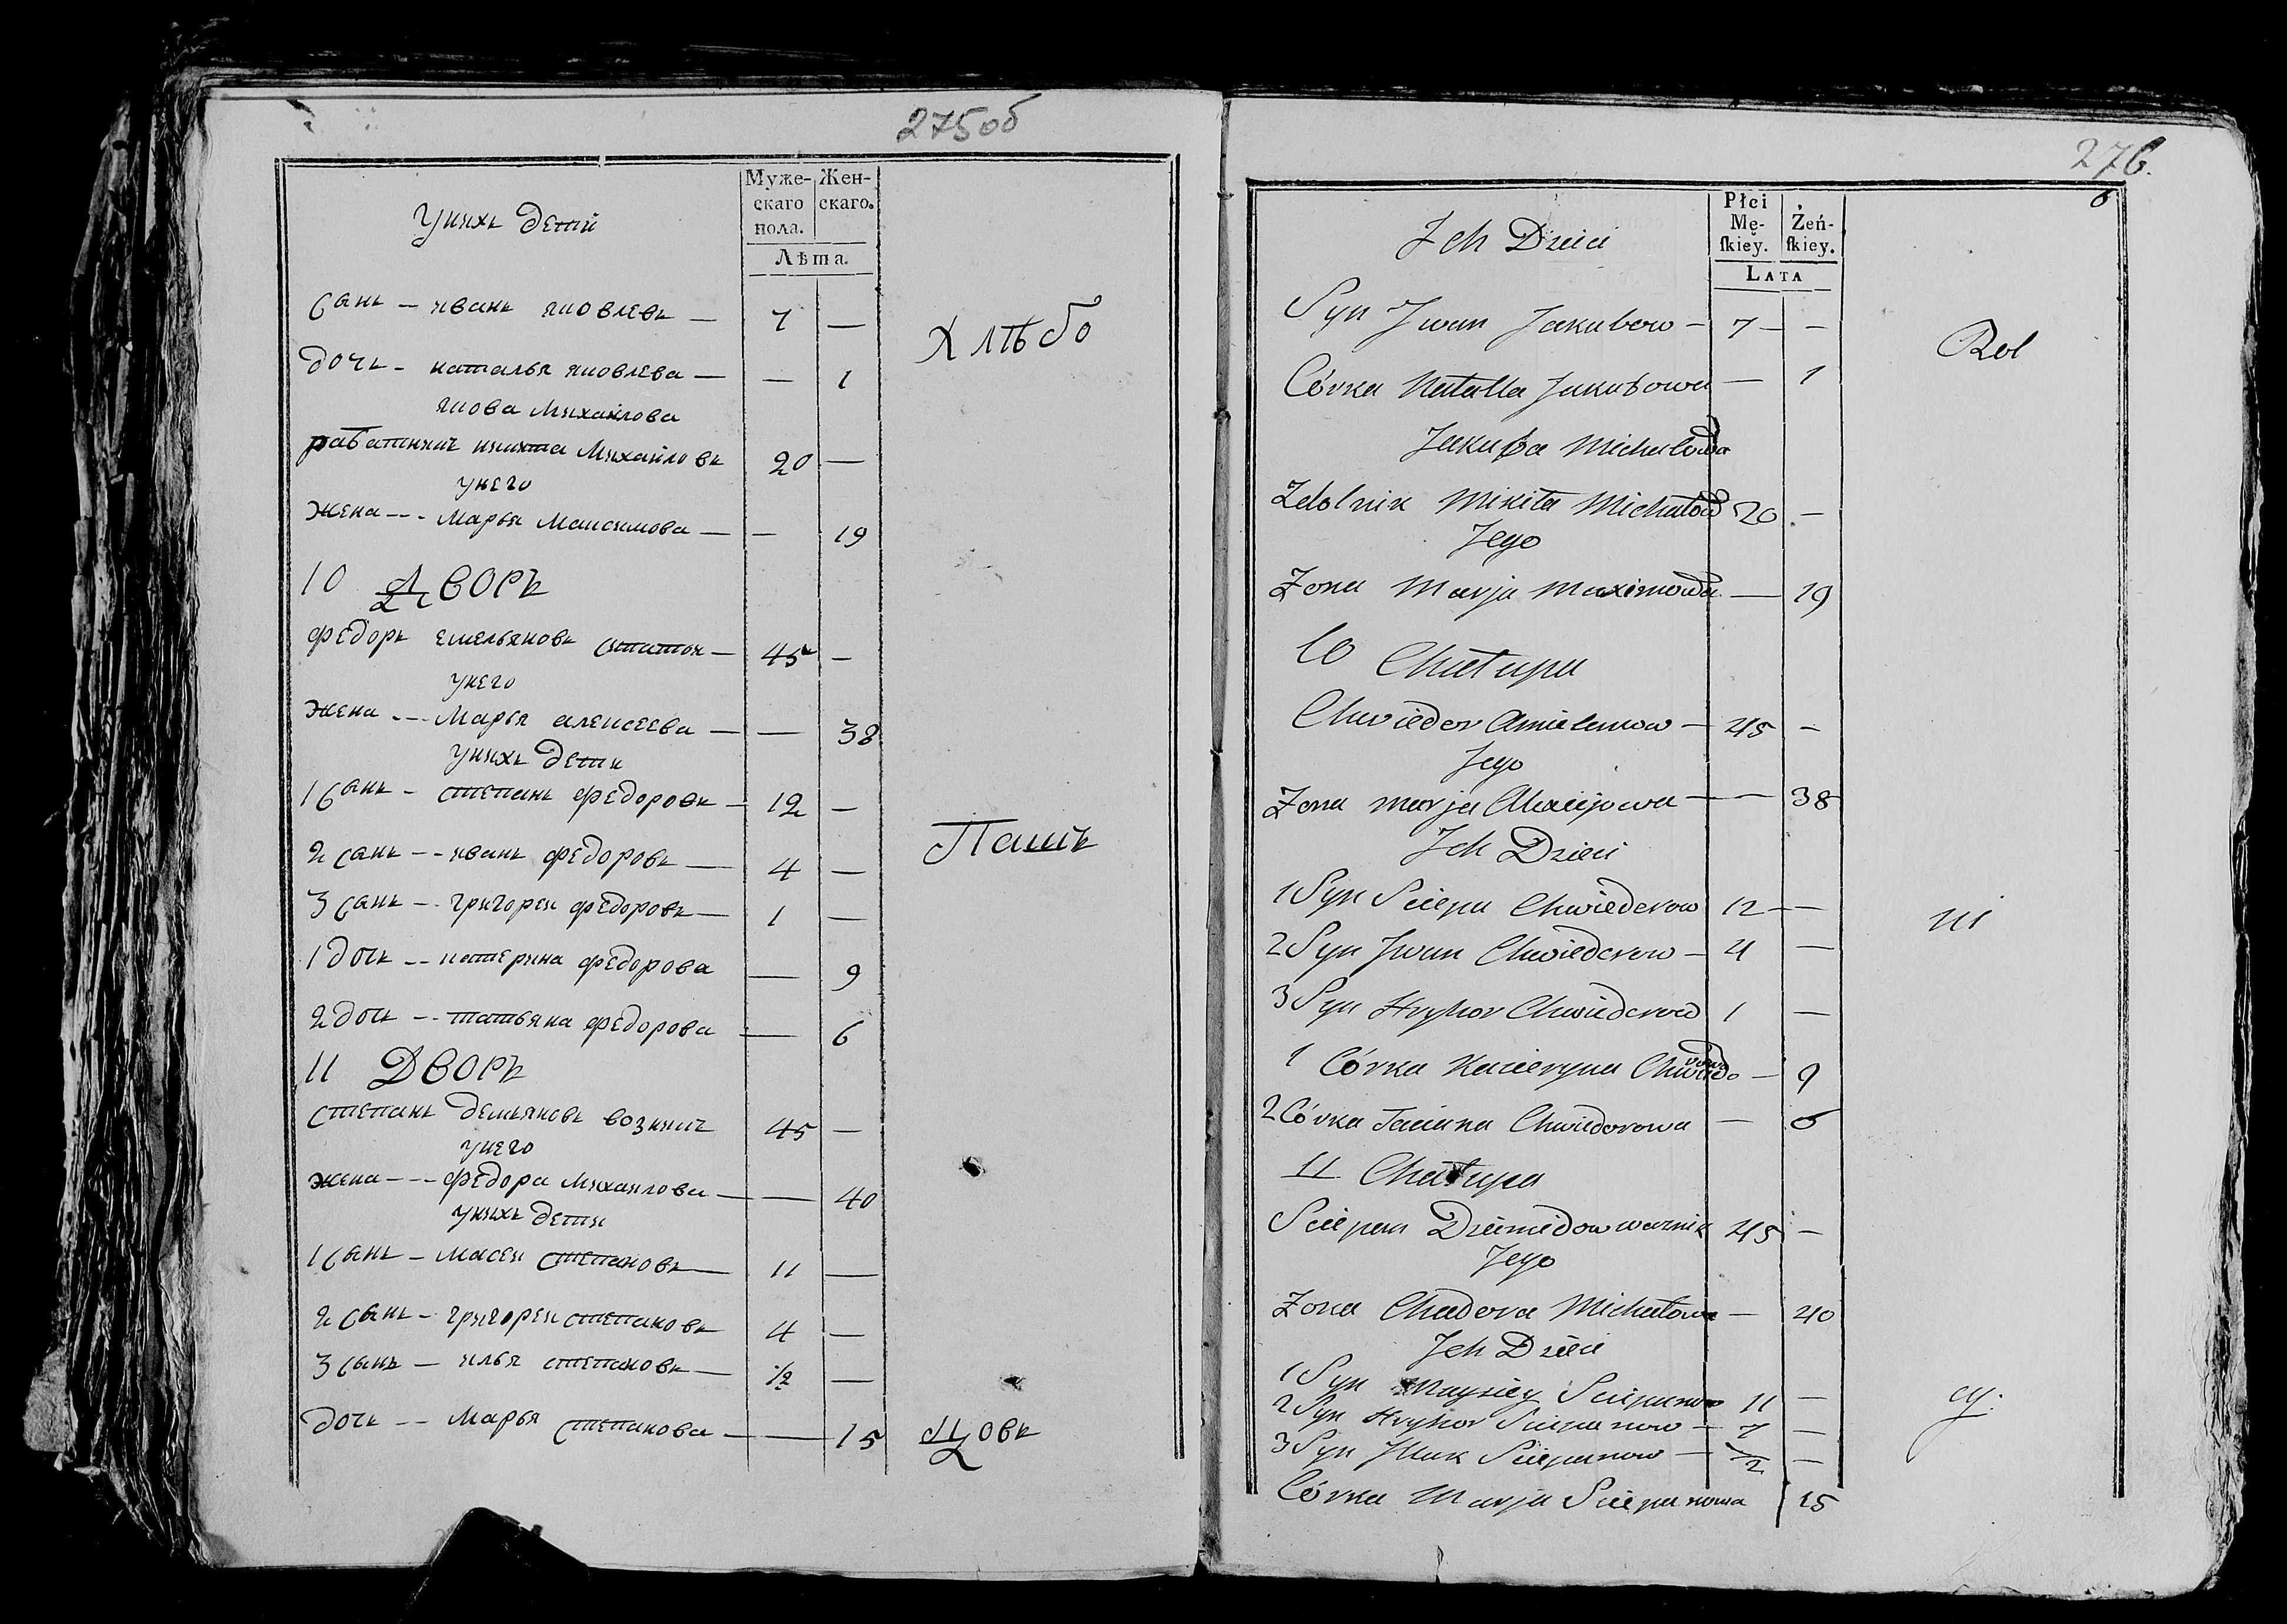 275об
Муже- Жен-
скаго скаго.
пола.
Лѣта.
унихъ детий
Сынъ — иванъ яковлевъ — 7 —
Хлѣбо
дочь — наталья яковлева — — 1
якова михайлова
работникъ никита Михайловъ 20 —
унего
жена --- Марья Максимова — — 19
10 Дворъ
федоръ емельяновъ — 45 —
унего
жена --- Марья алексеева — — 38
унихъ дети
1 Сынъ — степанъ федоровъ — 12 —
Пашъ
2 сынъ -- иванъ федоровъ — 4 —
3 Сынъ -- григореи федоровъ — 1 —
1 дочь -- катерина федорова — 9
2 дочь -- татьяна федорова — 6
11 Дворъ
степанъ демьяновъ возник 45 —
унего
жена --- федора михаилова — — 40
унихъ дети
1 Сынъ — Масеи степановъ — 11 —
2 Сынъ — григореи степановъ 4 —
3 Сынъ — илья степановъ — 1/2 —
дочь -- Марья степанова — — 15
цовъ
276.
6
Płci
Mę- Żeń-
ſkiey. ſkiey.
LATA
Jch Dzieci
Syn Jwan Jakubow — 7 — —
Rol
Córka Natalla Jakubowa — 1
Jakuba Michałowa
Zdolnik Mikita Michałow 20 —
Jego
Zona Marja Maximowa — 19
10 Chałupa
Chwiedor Amielanow — 45 —
Jego
Zona Marja — — 38
Jch Dzieci
1 Syn Sciepan Chwiederow 12 — —
ni
2 Syn Jwan Chwiederow — 4 —
3 Syn Hryhor Chwiederow 1 —
1 Córka Kacieryna Chwiedorowa — 9
2 Córka Taciana Chwiedorowa — 6
11 Chałupa
Sciepan Dziemidow woznik 45 —
Jego
Zona Chadora Michałowa — 40
Jch Dzieci
1 Syn Maysiey Sciepanow 11 —
cy.
2 Syn Hryhor Sciepanow — 7 —
3 Syn Sciepanow — 1/2 —
Córka Marja Sciepanowa 15